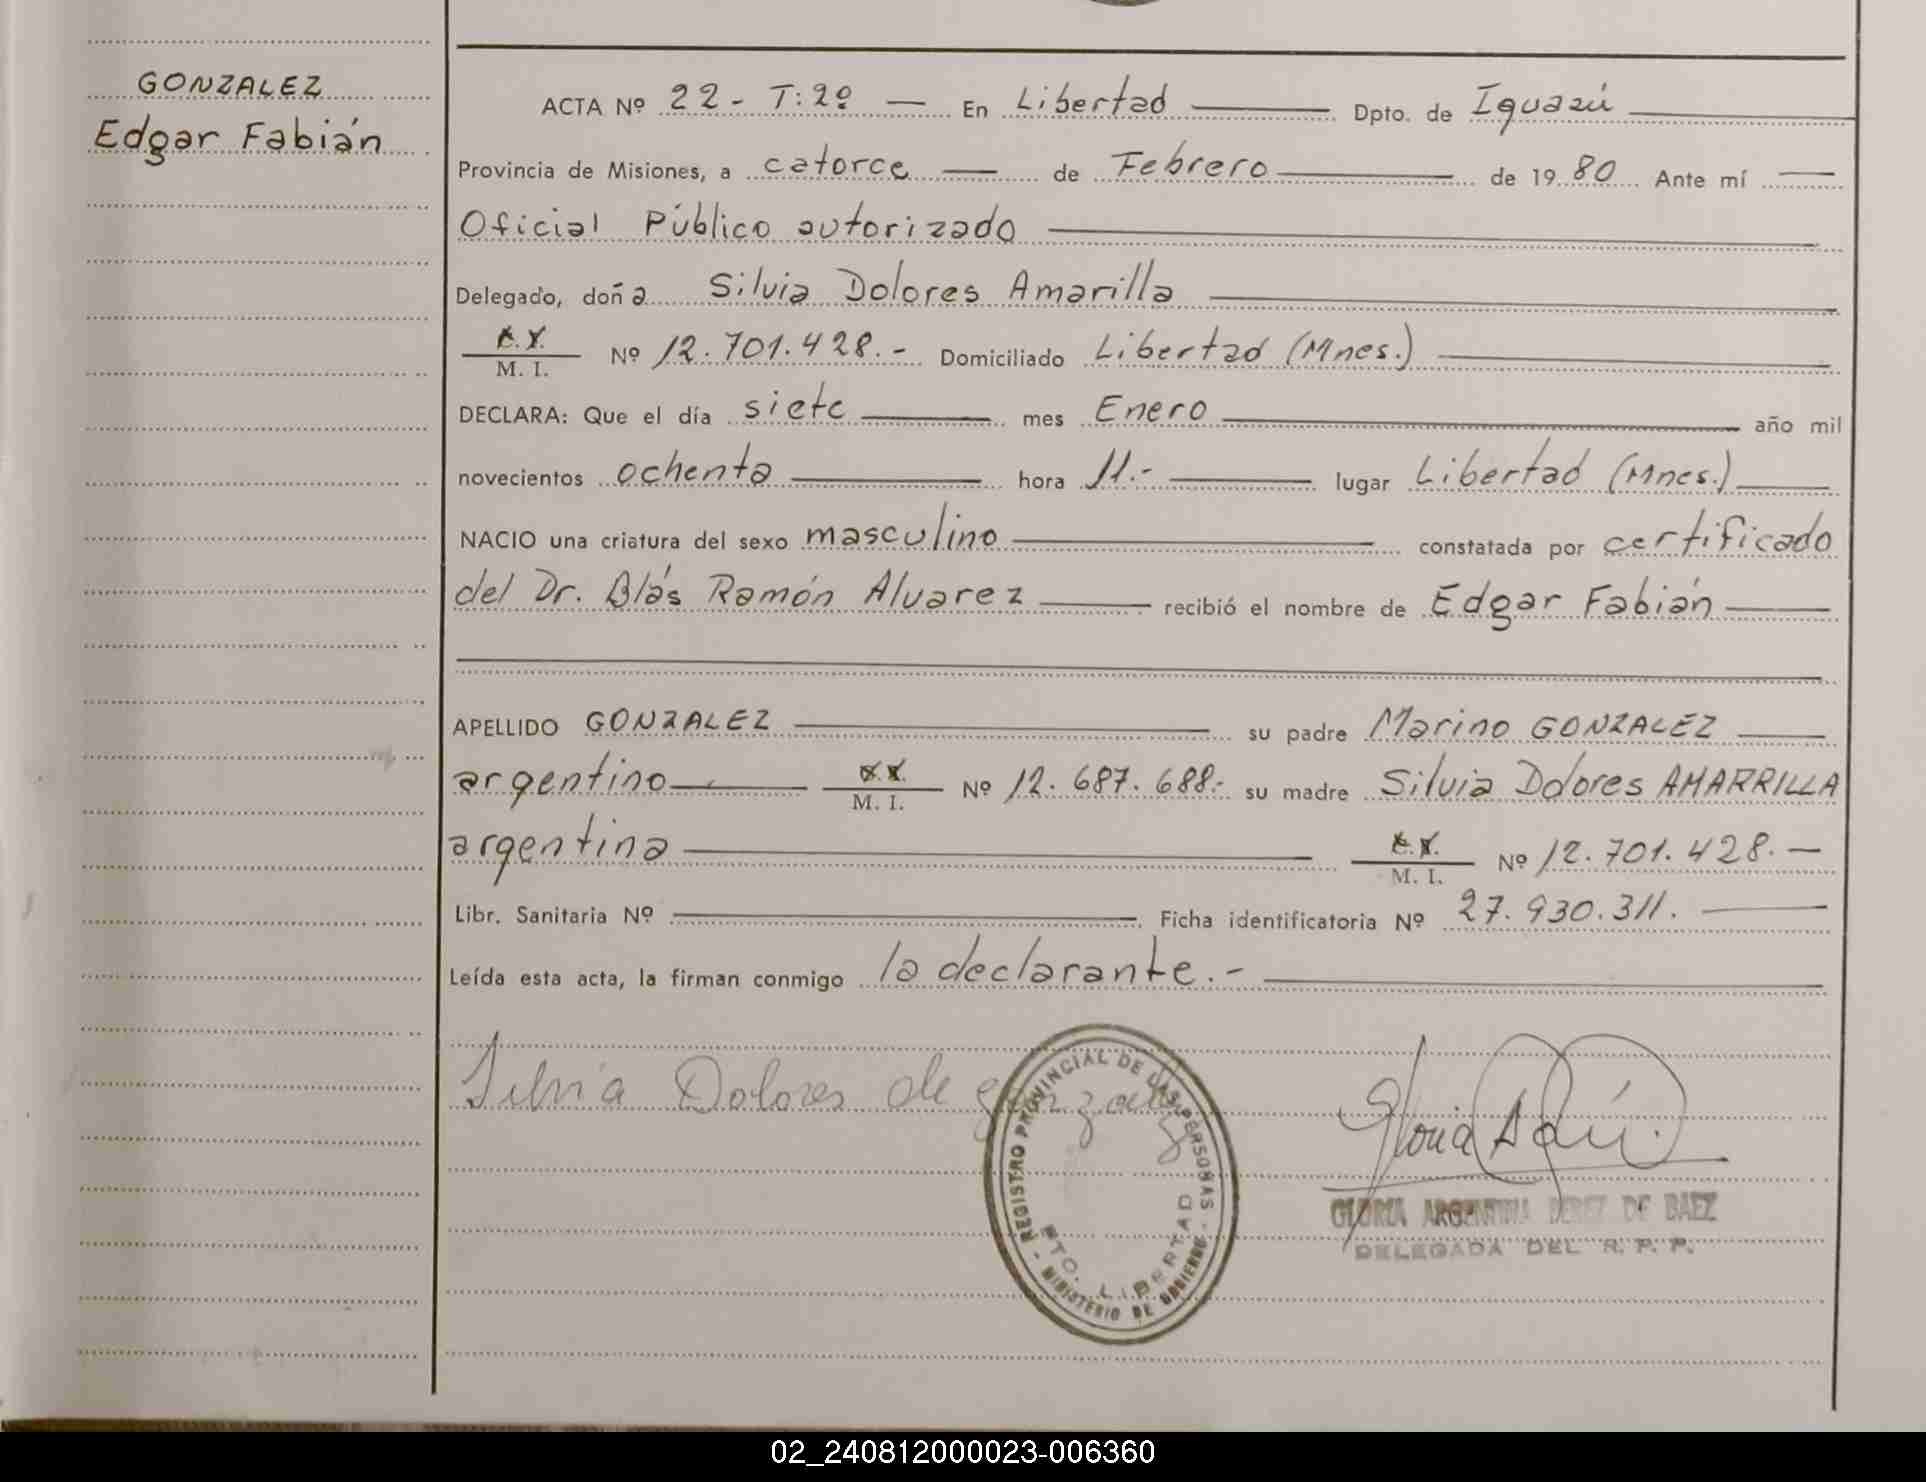 GONZALEZ
Edgar Fabián
ACTA Nº 22- T:2º — En Libertad — Dpto. de Iguazú —
Provincia de Misiones, a catorce — de Febrero — de 1980 Ante mí —
Oficial Público autorizado —
Delegado, doña Silvia Dolores Amarilla —
C.I. / M. I. Nº 12.701.428.- Domiciliado Libertad (Mnes.) —
DECLARA: Que el día siete — mes Enero — año mil
novecientos ochenta — hora 11.- — lugar Libertad (Mnes.) —
NACIO una criatura del sexo masculino — constatada por certificado
del Dr. Blás Ramón Alvarez — recibió el nombre de Edgar Fabián —
APELLIDO GONZALEZ — su padre Marino GONZALEZ —
argentino — M. I. Nº 12.687.688.- su madre Silvia Dolores AMARRILLA
argentina — C.I. / M. I. Nº 12.701.428.—
Libr. Sanitaria Nº — Ficha identificatoria Nº 27.930.311. —
Leída esta acta, la firman conmigo la declarante.- —
Silvia Dolores de gonzalez
REGISTRO PROVINCIAL DE LAS PERSONAS - MINISTERIO DE GOBIERNO -
PTO. LIBERTAD
GLORIA ARGENTINA PEREZ DE BAEZ
DELEGADA DEL R. P. P.
02_240812000023-006360